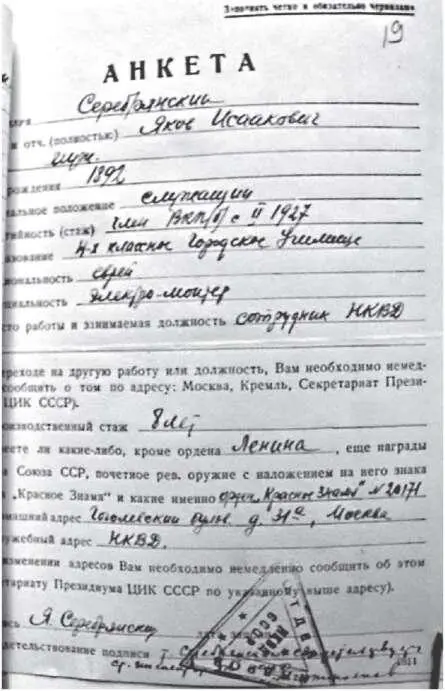 Заполнять четко и обязательно чернилами
19
АНКЕТА
Серебрянский
отч. (полностью) Яков Исаакович
муж.
рождения 1892
альное положение служащий
тийность (стаж) член ВКП(б) с II 1927
зование 4-х классное Городское Училище
иональность еврей
циальность электро-монтер
сто работы и занимаемая должность сотрудник НКВД
ереходе на другую работу или должность, Вам необходимо немед-
сообщить о том по адресу: Москва, Кремль, Секретариат Прези-
ЦИК СССР).
оизводственный стаж 8 лет
еете ли какие-либо, кроме ордена Ленина, еще награды
Союза ССР, почетное рев. оружие с наложением на него знака
„Красное Знамя" и какие именно орден „Красное Знамя" № 20171
машний адрес Гоголевский бульв. д. 31а, Москва
ужебный адрес НКВД.
изменении адресов Вам необходимо немедленно сообщить об этом
етариату Президиума ЦИК СССР по указанному выше адресу).
сь Я. Серебрянский
детельствование подписи т.